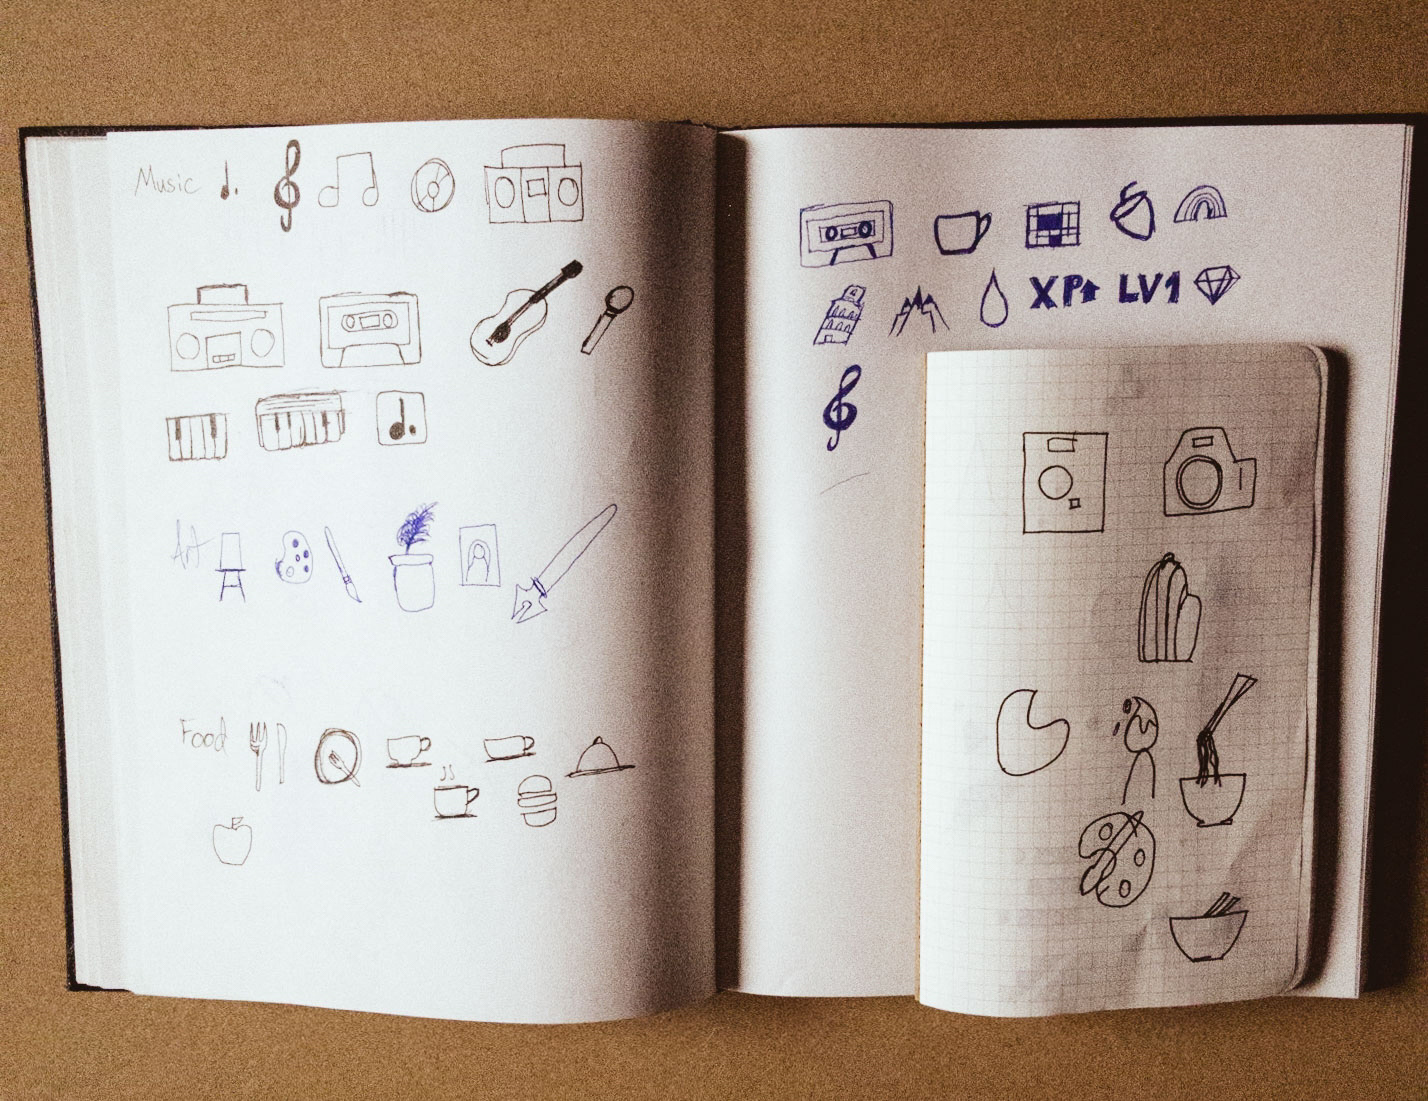 Music
XP LV1
Art
Food